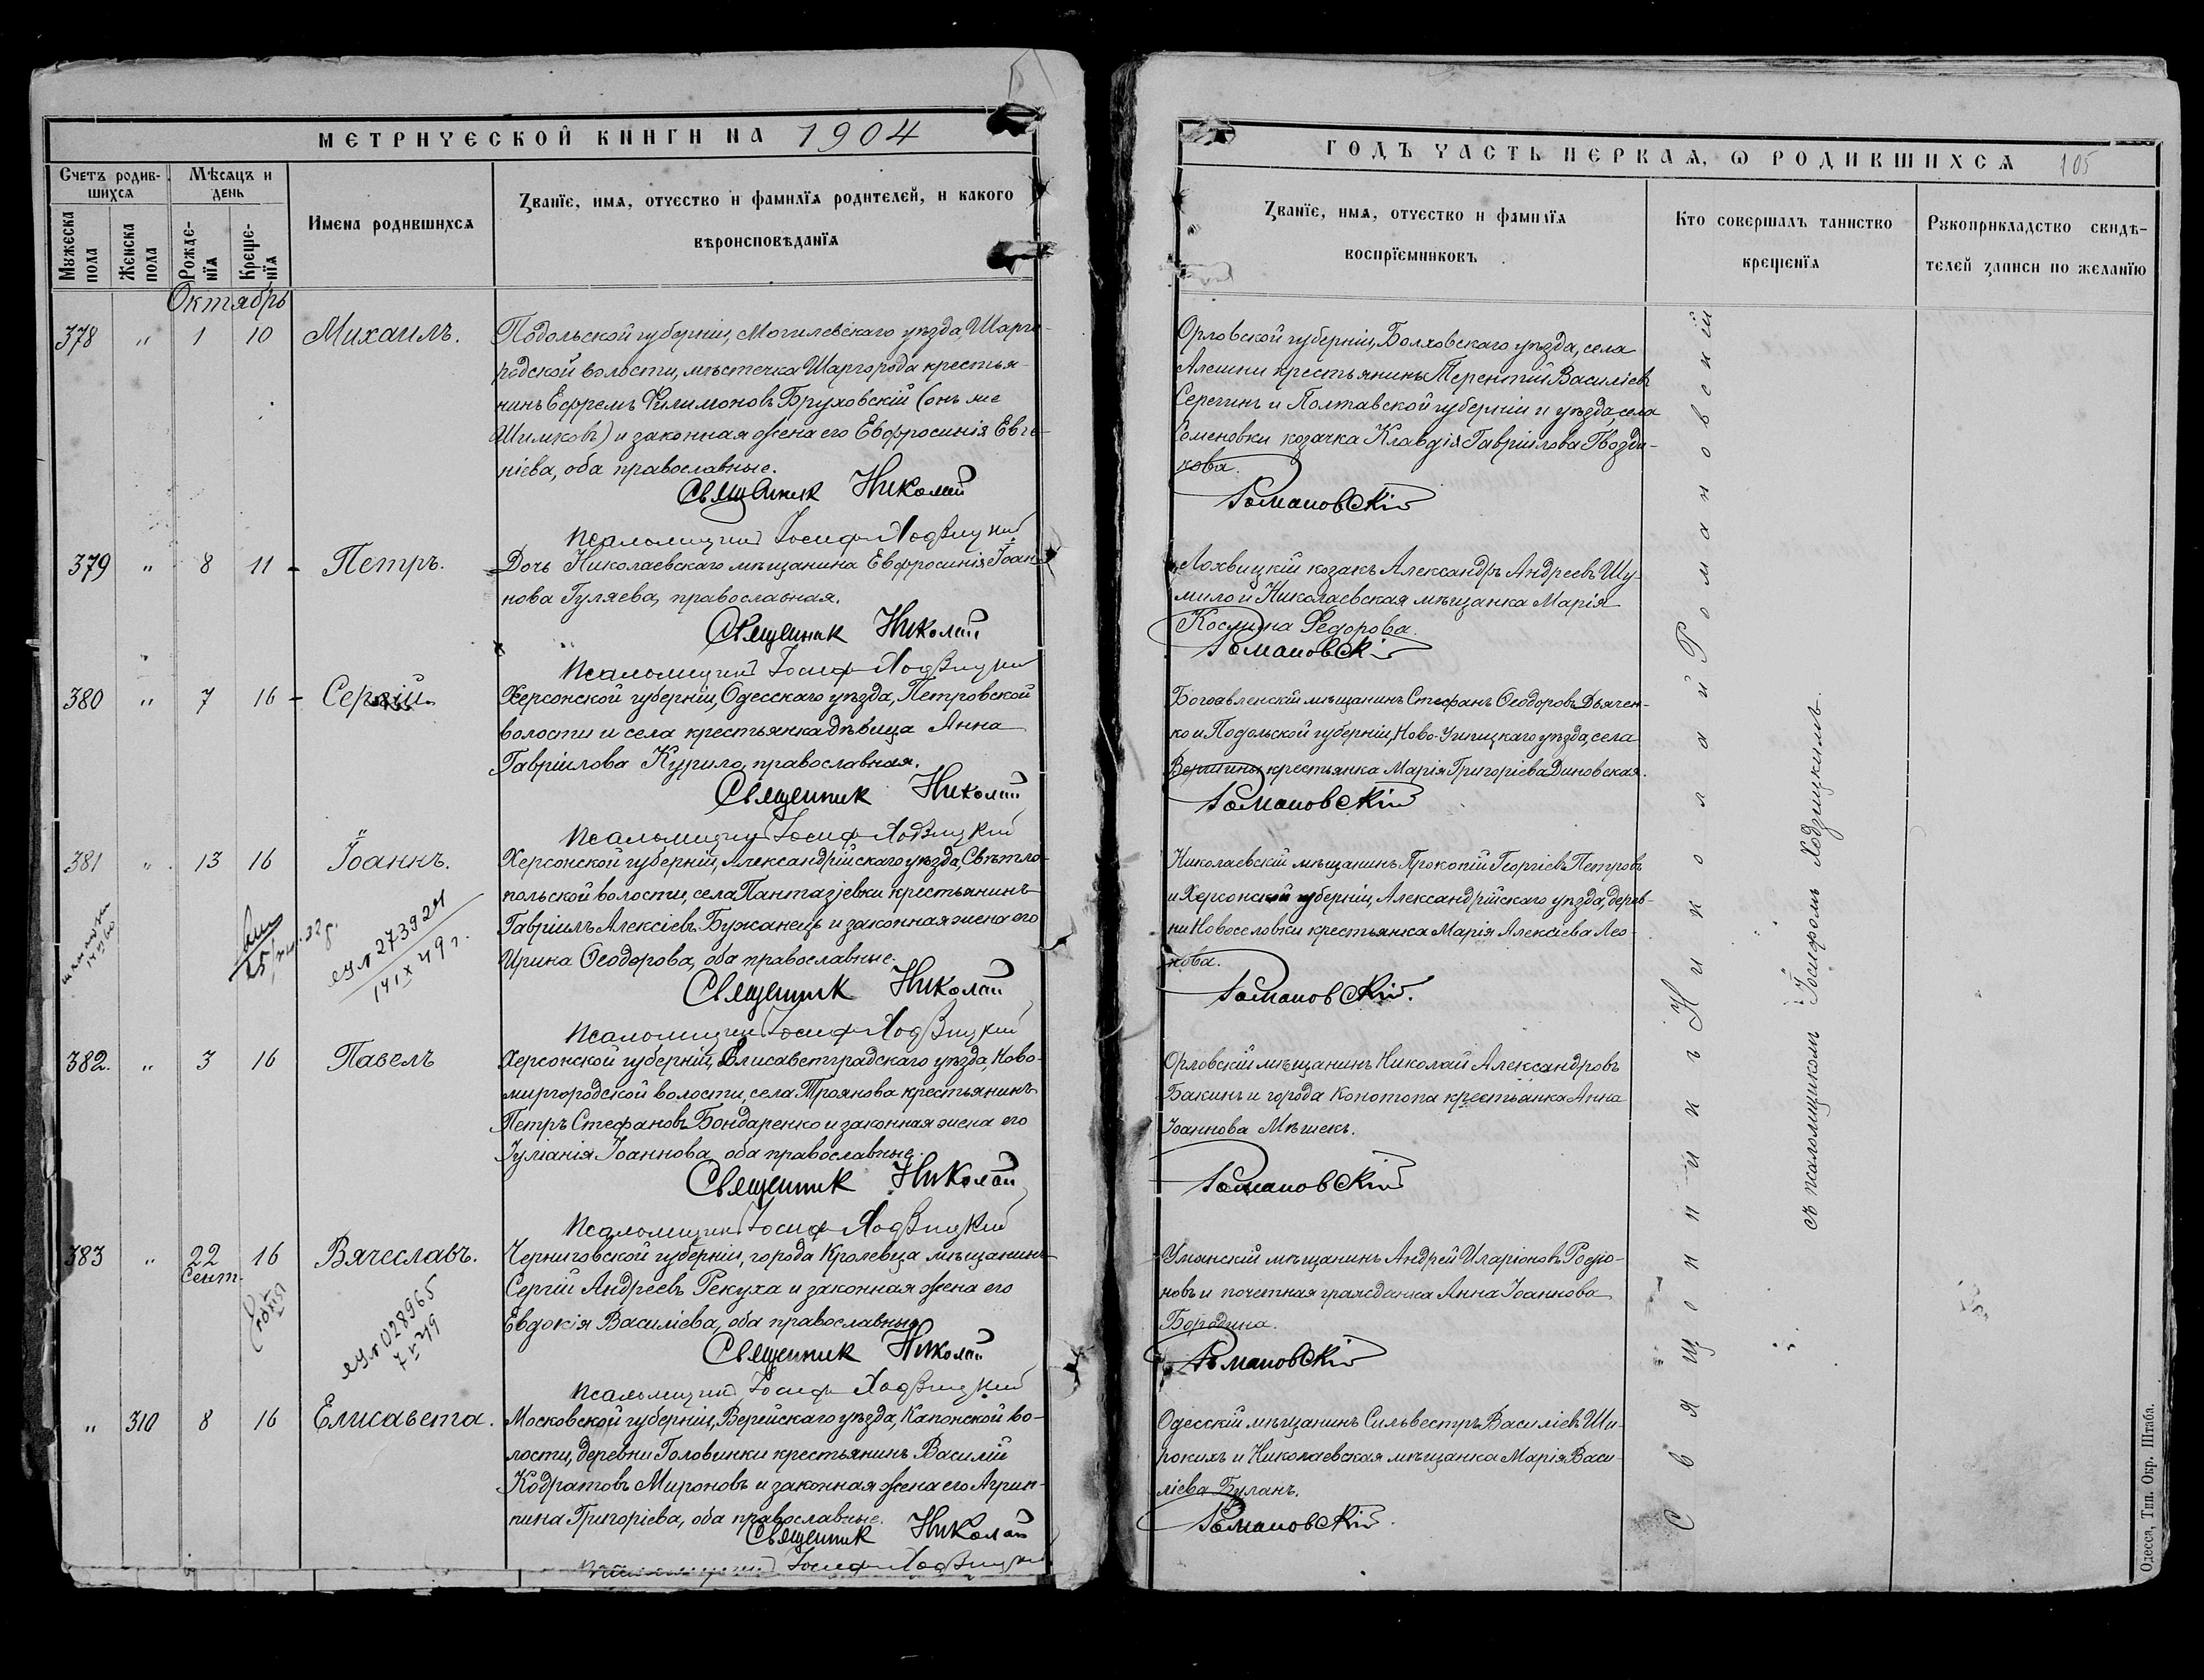 МЕТРИЧЕСКОЙ КНИГИ НА 1904
Счетъ родив-
шихся
Мѣсяцъ и
день
Мужеска
пола
Женска
пола
Рожде-
нія
Креще-
нія
Имена родившихся
Званїе, имя, отчество и фамилїя родителей, и какого
вѣроисповѣданїя
Октябрь
378 " 1 10 Михаилъ.
Подольской губерніи, Могилевскаго уѣзда, Шарго-
родской волости, мѣстечка Шаргорода крестья-
нинъ Ефремъ Филимоновъ Бруховскій (онъ же
Шимковъ) и законная жена его Евфросинія Евге-
ніева, оба православные.
Священник Николай
Псаломщикъ Іосиф Ходзицкий
379 " 8 11 - Петръ.
Дочь Николаевскаго мѣщанина Евфросинія Іоан-
нова Гуляева, православная.
Священник Николай
Псаломщикъ Іосиф Ходзицкий
380 " 7 16 - Сергій.
Херсонской губерніи, Одесскаго уѣзда, Петровской
волости и села крестьянка дѣвица Анна
Гавріилова Курило, православная.
Священник Николай
Псаломщикъ Іосиф Ходзицкий
381 " 13 16 Іоаннъ.
Херсонской губерніи, Александрійскаго уѣзда, Свѣтло-
польской волости, села Пантазіевки крестьянинъ
Гавріилъ Алексіевъ Бужанецъ и законная жена его
Ирина Ѳеодорова, оба православные.
Священник Николай
Псаломщикъ Іосиф Ходзицкий
273924
14 IX 49 г.
382. " 3 16 Павелъ
Херсонской губерніи, Елисаветградскаго уѣзда, Ново-
миргородской волости, села Троянова крестьянинъ
Петръ Стефановъ Бондаренко и законная жена его
Іуліанія Іоаннова, оба православные.
Священник Николай
Псаломщикъ Іосиф Ходзицкий
383 " 22 16 Вячеславъ.
Сент.
Черниговской губерніи, города Кролевца мѣщанинъ
Сергій Андреевъ Рекуха и законная жена его
Евдокія Василіева, оба православные
Священник Николай
Псаломщикъ Іосиф Ходзицкий
028965
" 310 8 16 Елисавета.
Московской губерніи, Верейскаго уѣзда, Капонской во-
лости, деревни Головинки крестьянинъ Василій
Кодратовъ Мироновъ и законная жена его Агрип-
пина Григоріева, оба православные.
Священник Николай
Псаломщикъ Іосиф Ходзицкий
ГОДЪ ЧАСТЬ ПЕРВАЯ, Ѡ РОДИВШИХСЯ 105
Званїе, имя, отчество и фамилїя
воспрїемниковъ
Кто совершалъ таинство
крещенїя
Рукоприкладство свидѣ-
телей записи по желанїю
Орловской губерніи, Болховскаго уѣзда, села
Алешни крестьянинъ Терентій Василіевъ
Серегинъ и Полтавской губерніи и уѣзда, села
Семеновки козачка Клавдія Гавріилова Гвозди-
кова.
Романовскій
Лохвицкій козакъ Александръ Андреевъ Шу-
мило и Николаевская мѣщанка Марія
Космина Федорова.
Романовскій
Богоявленскій мѣщанинъ Стефанъ Ѳеодоровъ Дьячен-
ко и Подольской губерніи, Ново-Ушицкаго уѣзда, села
крестьянка Марія Григоріева Диновская.
Романовскій
Николаевскій мѣщанинъ Прокопій Георгіевъ Петровъ
и Херсонской губерніи, Александрійскаго уѣзда, дерев-
ни Новоселовки крестьянка Марія Алексіева Лео-
нова.
Романовскій.
Орловскій мѣщанинъ Николай Александровъ
Бакинъ и города Конотопа крестьянка Анна
Іоаннова Мѣшекъ.
Романовскій
Уманскій мѣщанинъ Андрей Иларіоновъ Родіо-
новъ и почетная гражданка Анна Іоаннова
Бородина.
Романовскій
Одесскій мѣщанинъ Сильвестръ Василіевъ Ши-
рокихъ и Николаевская мѣщанка Марія Васи-
ліева Буланъ.
Романовскій.
Священникъ Николай Романовскій
съ псаломщикомъ Іосифомъ Ходзицкимъ.
Одесса, Тип. Окр. Штаба.